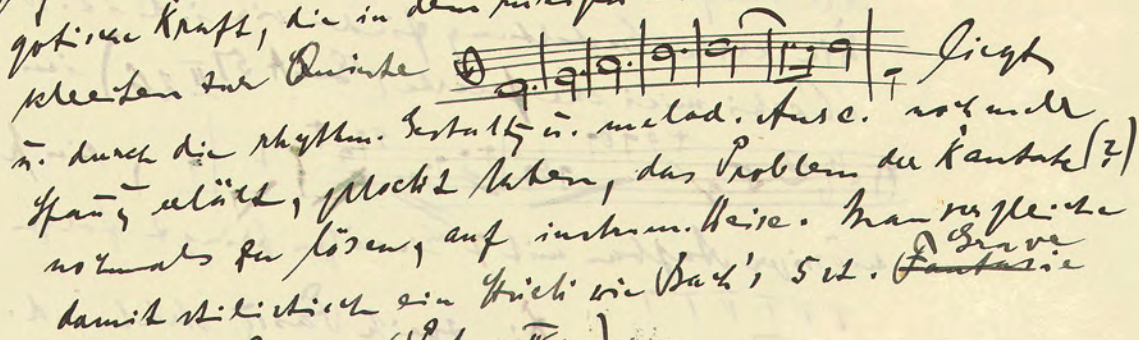 gotische Kraft, die in dem
zur Quinte liegt
u. durch die rhythm. Gestaltg u. melod. Ausc. noch mehr
Spanng erhält, gelockt haben, das Problem der Kantate (?)
nochmals zu lösen, auf instrum. Weise. Man vergleiche
damit stilistisch ein Stück wie Bach's 5 st. Fantasie Grave